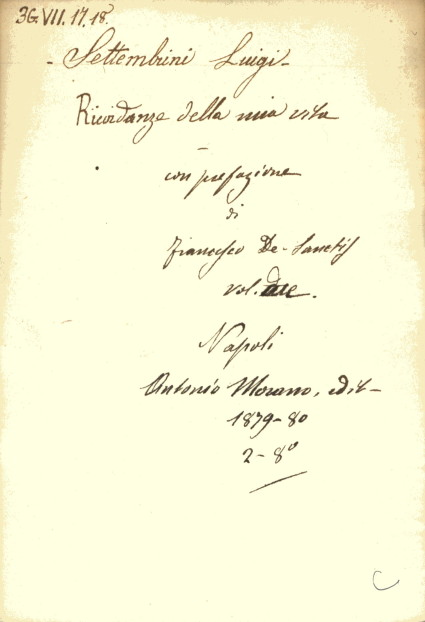 3G.VII.17.18.
- Settembrini Luigi -
Ricordanze della mia vita
con prefazione
di
Francesco De-Sanctis
vol. due.
Napoli
Antonio Morano, edit-
1879-80
2-8°
C